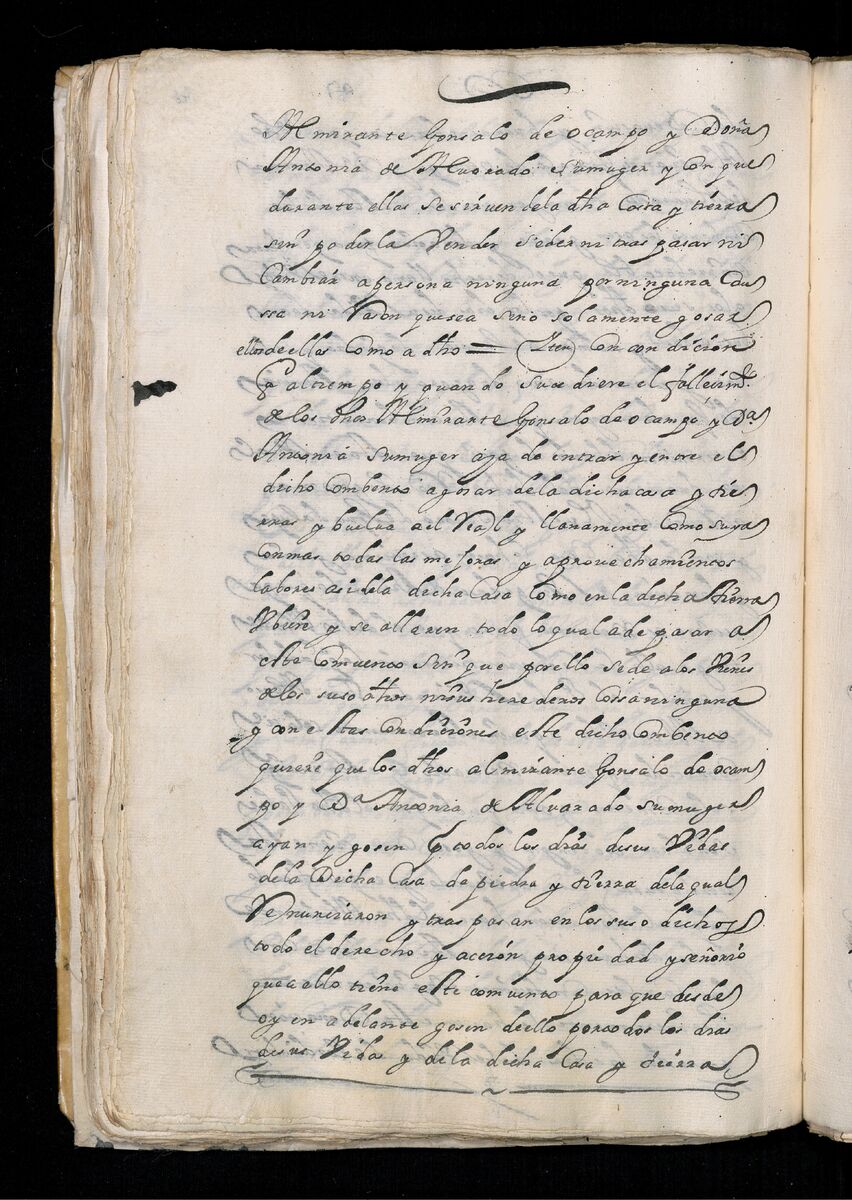 Almirante Gonsalo de ocampo y Doña
Antonia de Alvorado sumuger y con que
durante ellas se sirven dela dha Cassa y tierra
sin poderla Vender seder ni tras pasar ni
Cambiar apersona ninguna por ninguna Cau
ssa ni Rason quesea sino solamente gosar
ellos deellas Como adho = Iten Con condicion
q altiempo y quando susediere el falleçimto
delos dhos Almirante Gonsalo de ocampo y Da
Antonia sumuger aja de entrar y entre el
dicho Combento agosar dela dicha casa y tie
rras y buelva ael Real y llanamente Como suya
con mas todas las mejoras y aprovechamientos
labores asi dela dicha Casa Como en la dicha tierra
Ubiere y se allaren todo lo qual a de pasar a
este Comvento sin que por ello se de a los Vienes
de los suso dhos ni sus herederos cosa ninguna
y con estas Condiciones este dicho Combento
quiere que los dhos almirante Gonsalo de ocam
po y Da Antonia de Alvarado sumuger
ayan y gosen p todos los dias desus Vidas
dela Dicha Casa de piedra y tierra dela qual
Renunciaron y tras pasan en los suso dichos
todo el derecho y acción propiedad y señorio
que a ello tiene este comvento para que desde
oy en adelante gosen deello por todos los dias
desus Vidas y dela dicha Casa y tierra